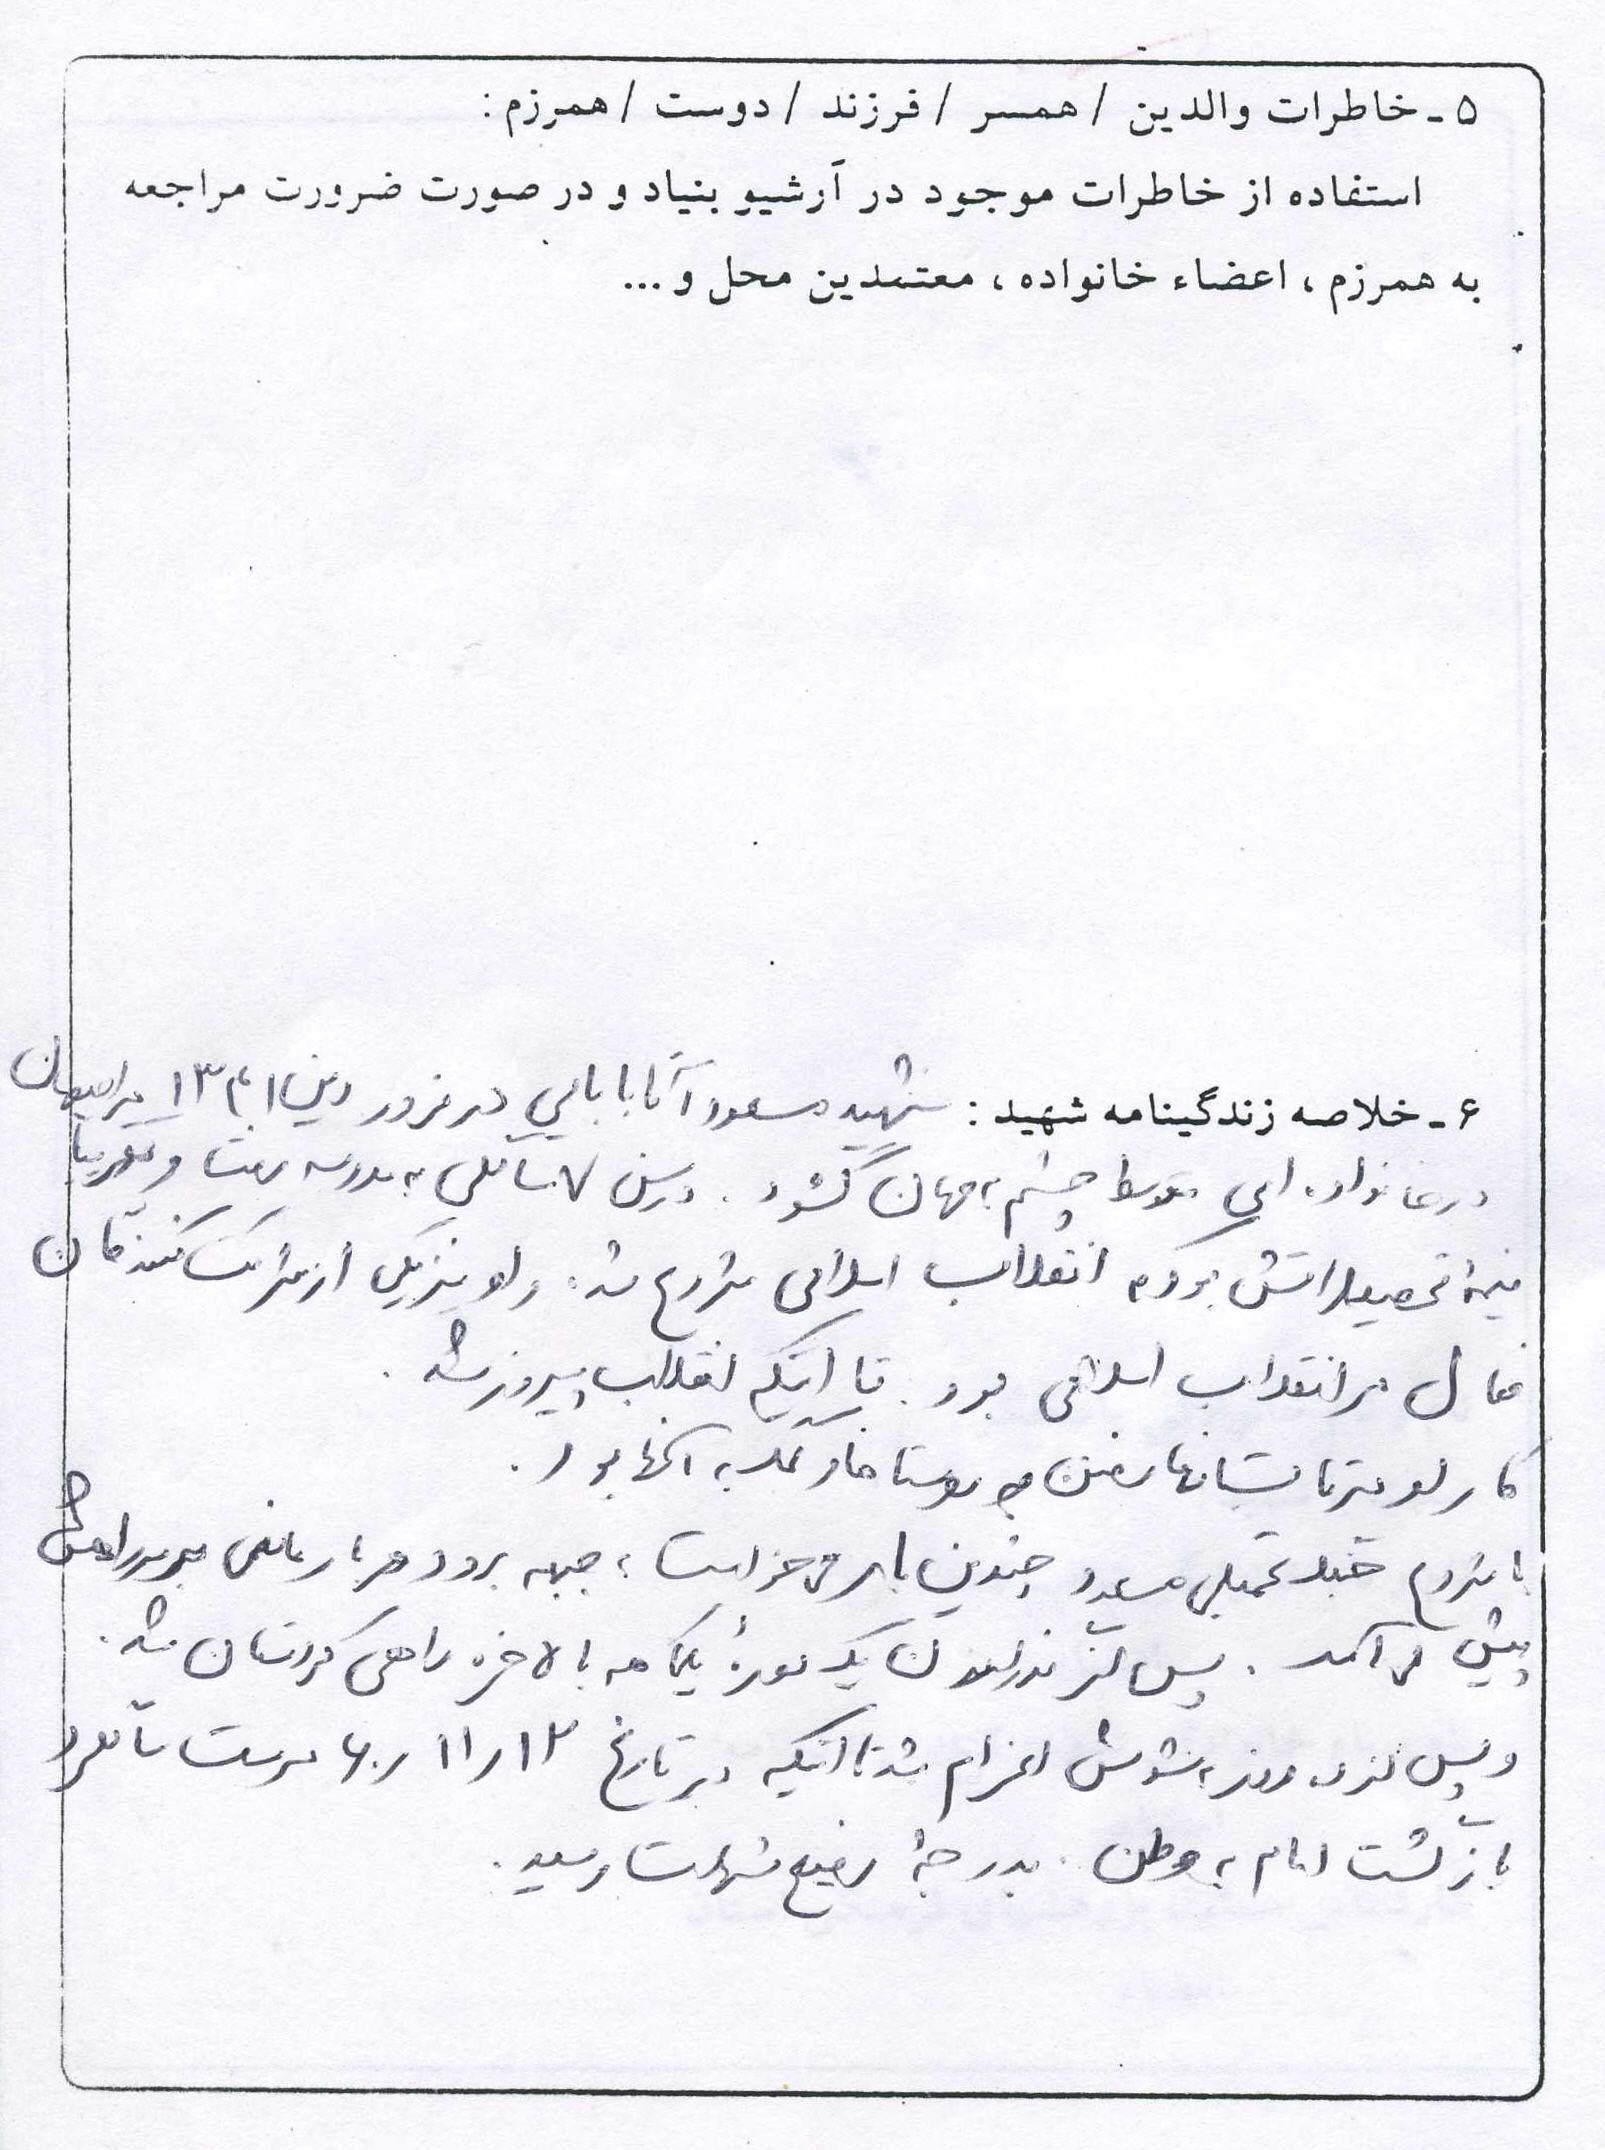 ۵ - خاطرات والدین / همسر / فرزند / دوست / همرزم :
استفاده از خاطرات موجود در آرشیو بنیاد و در صورت ضرورت مراجعه
به همرزم ، اعضاء خانواده ، معتمدین محل و ...
۶ - خلاصه زندگینامه شهید : شهید مسعود آقابابایی در فروردین ۱۳۴۱ در اصفهان
در خانواده ای متوسط چشم به جهان گشود . در سن ۷ سالگی به مدرسه رفت و تقریبا
نیمهٔ تحصیلاتش بود که انقلاب اسلامی شروع شد . و او نیز یکی از شرکت کنندگان
فعال در انقلاب اسلامی بود . تا اینکه انقلاب پیروز شد .
کار او در تابستانها رفتن به روستاها و کمک به آنها بود .
با شروع جنگ تحمیلی مسعود چندین بار می خواست به جبهه برود و هر بار مانعی بر سر راهش
پیش می آمد . پس از گذراندن یک دورهٔ یکماهه بالاخره راهی کردستان شد .
و پس از ده روز به شوش اعزام شد تا اینکه در تاریخ ۱۲ ر ۱۱ ر ۶۰ درست سالگرد
بازگشت امام به وطن . بدرجهٔ رفیع شهادت رسید .